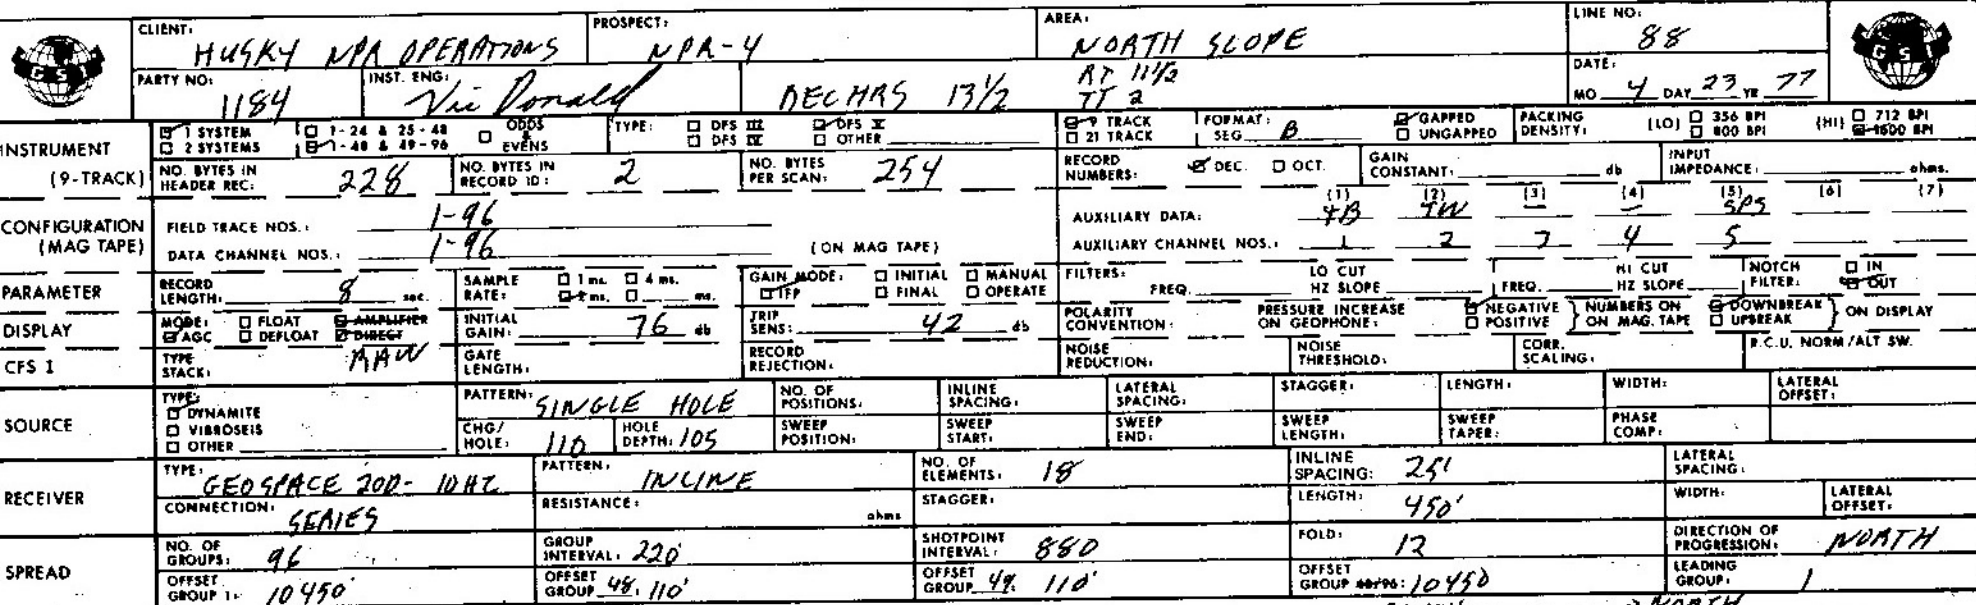 CLIENT: HUSKY NPR OPERATIONS PROSPECT: NPR-4 AREA: NORTH SLOPE LINE NO: 88
GSI GSI
PARTY NO: 1184 INST. ENG: Vic Donald REC HRS 13½ RT 11½ TT 2 DATE: MO 4 DAY 23 YR 77
INSTRUMENT (9-TRACK) 1 SYSTEM 1-24 & 25-48 ODDS & EVENS TYPE: DFS III DFS V 9 TRACK FORMAT: SEG B GAPPED PACKING DENSITY: (LO) 356 BPI (HI) 712 BPI
2 SYSTEMS 1-48 & 49-96 DFS IV OTHER 21 TRACK UNGAPPED 800 BPI 1600 BPI
NO. BYTES IN HEADER REC: 228 NO. BYTES IN RECORD ID: 2 NO. BYTES PER SCAN: 254 RECORD NUMBERS: DEC. OCT. GAIN CONSTANT: db INPUT IMPEDANCE: ohms.
(1) (2) (3) (4) (5) (6) (7)
CONFIGURATION (MAG TAPE) FIELD TRACE NOS.: 1-96 AUXILIARY DATA: TB TW — — SPS
DATA CHANNEL NOS.: 1-96 (ON MAG TAPE) AUXILIARY CHANNEL NOS.: 1 2 3 4 5
PARAMETER RECORD LENGTH: 8 sec. SAMPLE RATE: 1 ms. 4 ms. 2 ms. ms. GAIN MODE: INITIAL MANUAL IFP FINAL OPERATE FILTERS: FREQ. LO CUT HZ SLOPE FREQ. HI CUT HZ SLOPE NOTCH FILTER: IN OUT
DISPLAY MODE: FLOAT AMPLIFIER AGC DEFLOAT DIRECT INITIAL GAIN: 76 db TRIP SENS: 42 db POLARITY CONVENTION: PRESSURE INCREASE ON GEOPHONE: NEGATIVE POSITIVE } NUMBERS ON ON MAG. TAPE DOWNBREAK UPBREAK } ON DISPLAY
CFS I TYPE STACK: RAW GATE LENGTH: RECORD REJECTION: NOISE REDUCTION: NOISE THRESHOLD: CORR. SCALING: R.C.U. NORM/ALT SW.
SOURCE TYPE: DYNAMITE VIBROSEIS OTHER PATTERN: SINGLE HOLE NO. OF POSITIONS: INLINE SPACING: LATERAL SPACING: STAGGER: LENGTH: WIDTH: LATERAL OFFSET:
CHG/ HOLE: 110 HOLE DEPTH: 105 SWEEP POSITION: SWEEP START: SWEEP END: SWEEP LENGTH: SWEEP TAPER: PHASE COMP:
RECEIVER TYPE: GEOSPACE 20D- 10HZ PATTERN: INLINE NO. OF ELEMENTS: 18 INLINE SPACING: 25' LATERAL SPACING:
CONNECTION: SERIES RESISTANCE: ohms STAGGER: LENGTH: 450' WIDTH: LATERAL OFFSET:
SPREAD NO. OF GROUPS: 96 GROUP INTERVAL: 220' SHOTPOINT INTERVAL: 880 FOLD: 12 DIRECTION OF PROGRESSION: NORTH
OFFSET GROUP 1: 10450' OFFSET GROUP 48: 110' OFFSET GROUP 49: 110' OFFSET GROUP 48/96: 10450 LEADING GROUP: 1
NORTH